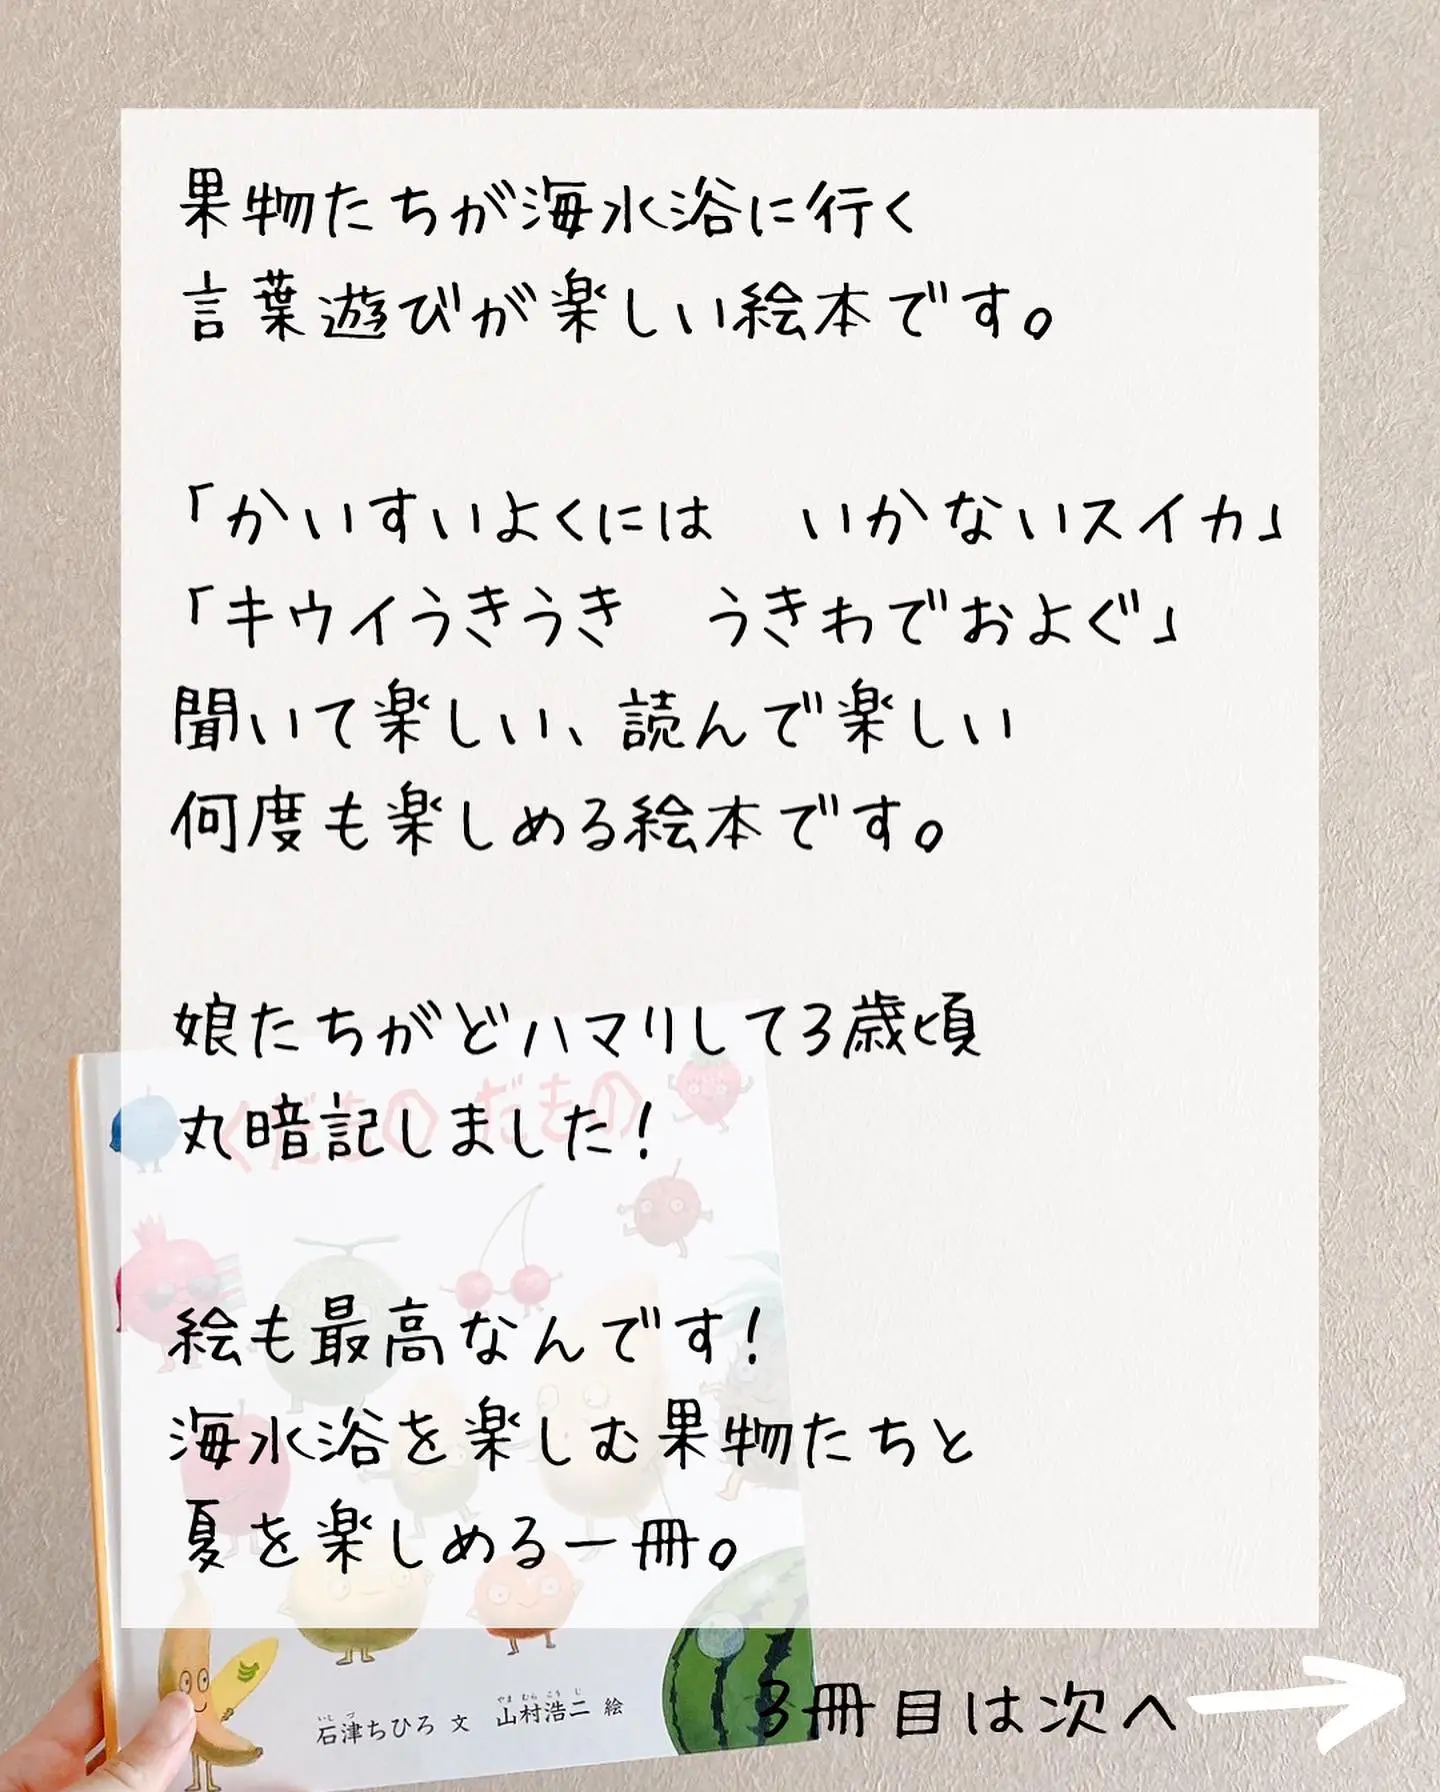 果物たちが海水浴に行く
言葉遊びが楽しい絵本です。
「かいすいよくには　いかないスイカ」
「キウイうきうき　うきわでおよぐ」
聞いて楽しい、読んで楽しい
何度も楽しめる絵本です。
娘たちがどハマりして3歳頃
丸暗記しました！
くだものだもの
絵も最高なんです！
海水浴を楽しむ果物たちと
夏を楽しめる一冊。
いしづ　やまむらこうじ
石津ちひろ 文　山村浩二 絵
3冊目は次へ